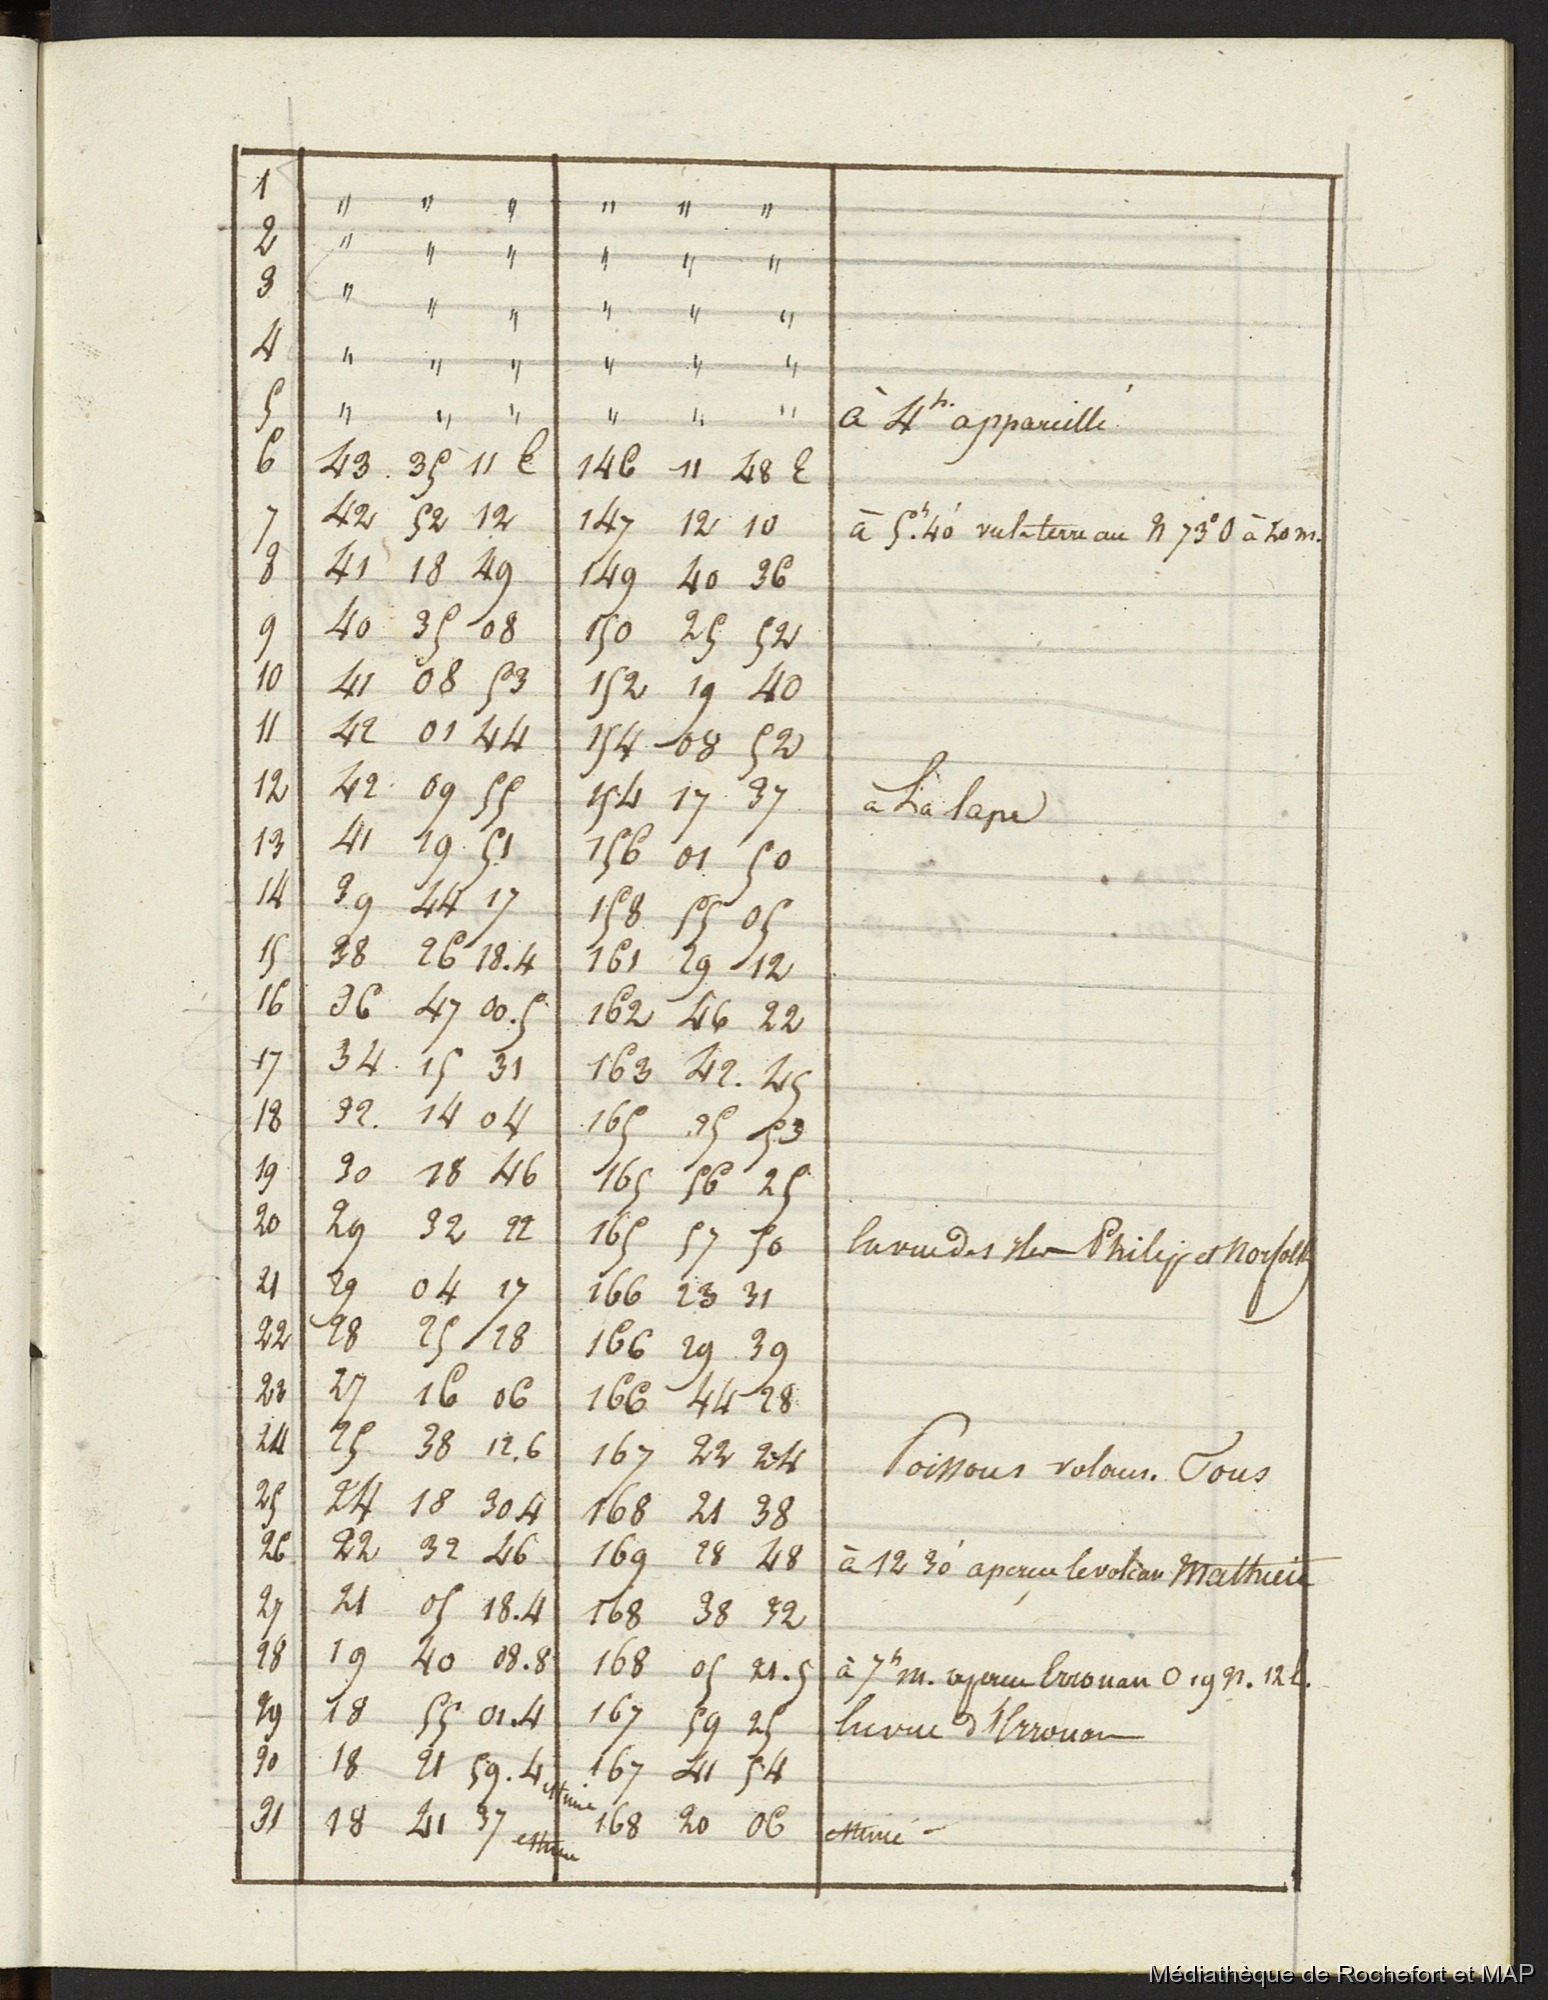 1 " " " " " "
2 " " " " " "
3 " " " " " "
4 " " " " " "
5 " " " " " " à 4h. appareillé
6 43. 35 11 E 146 11 48 E
7 42 52 12 147 12 10 à 5h.40' vu la terre au N 73° O à 20 m.
8 41 18 49 149 40 36
9 40 35 08 150 25 52
10 41 08 53 152 19 40
11 42 01 44 154 08 52
12 42 09 55 154 17 37 à la Cape
13 41 19 51 156 01 50
14 39 44 17 158 55 05
15 38 26 18.4 161 29 12
16 36 47 00.5 162 46 22
17 34 15 31 163 42. 45
18 32. 14 04 165 25 53
19 30 18 46 165 56 25
20 29 32 22 165 57 50 En vue des iles Philip et Norfolk
21 29 04 17 166 23 31
22 28 25 28 166 29 39
23 27 16 06 166 44 28
24 25 38 12.6 167 22 24 Poissons volans. Fous
25 24 18 30.4 168 21 38
26 22 32 46 169 28 48 à 12 30' apercu le volcan Mathieu
27 21 05 18.4 168 38 32
28 19 40 08.8 168 05 21.5 à 7h m. apercu Erronan O 19 N. 12 l.
29 18 55 01.4 167 59 25 En vue d'Erronan
30 18 21 59.4 estimé 167 41 54
31 18 41 37 estimé 168 20 06 estimé -
Médiathèque de Rochefort et MAP